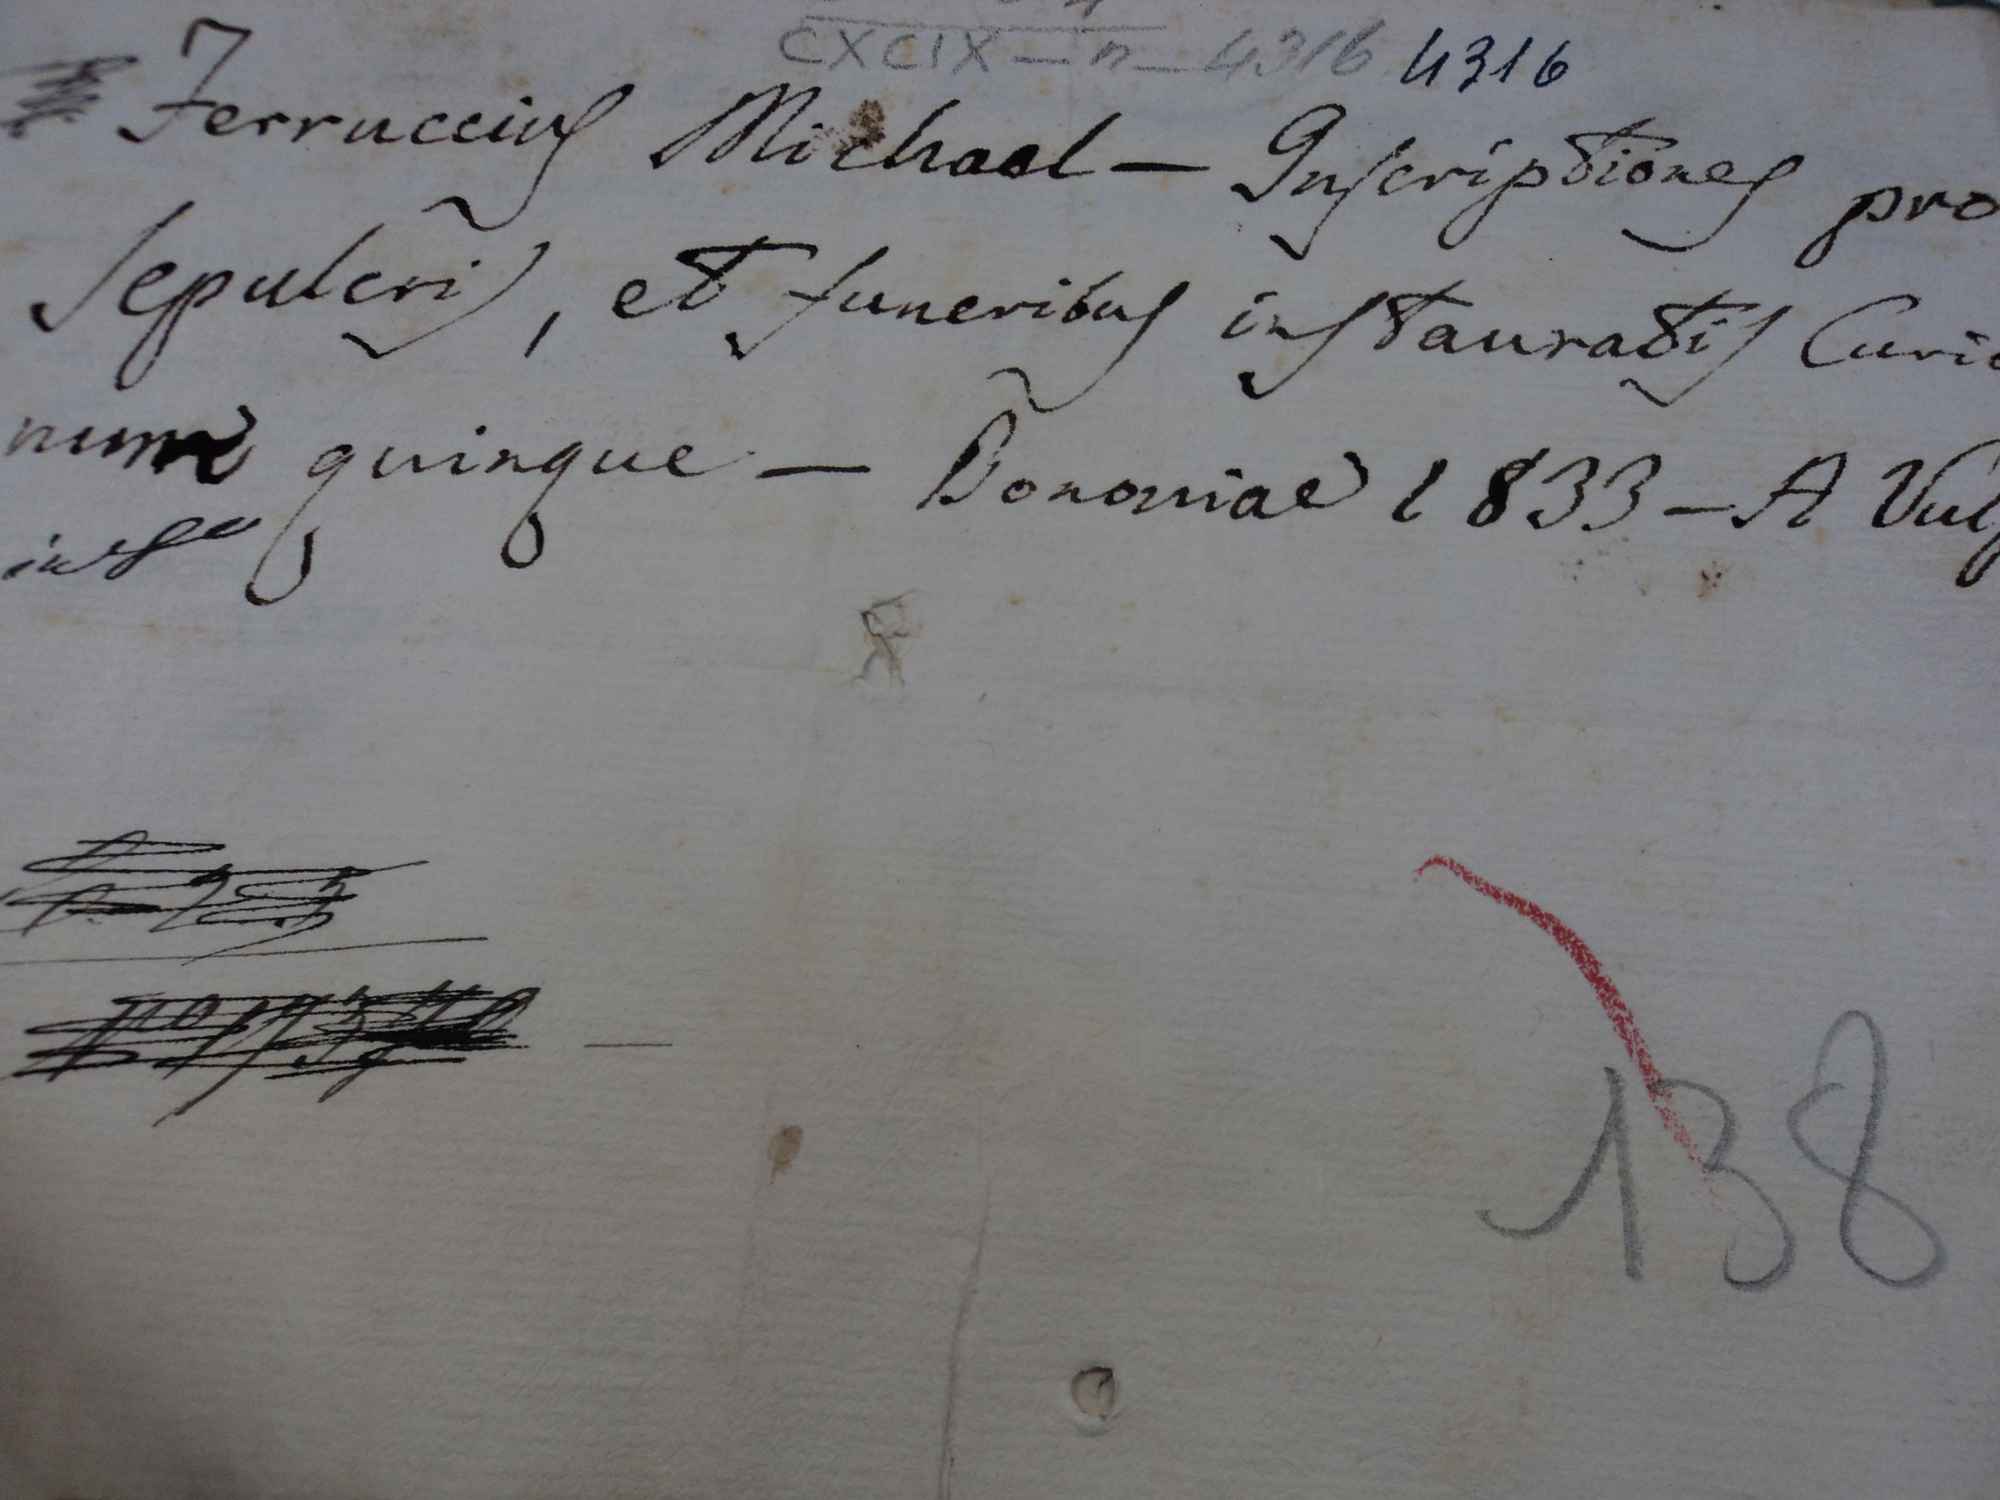 CXCIX - n - 4316 4316
Ferruccius Michael - Inscriptiones pro
Sepulcris, et funeribus instauratis Curio
num quinque - Bononiae 1833 - A Vulp
in 8°
138